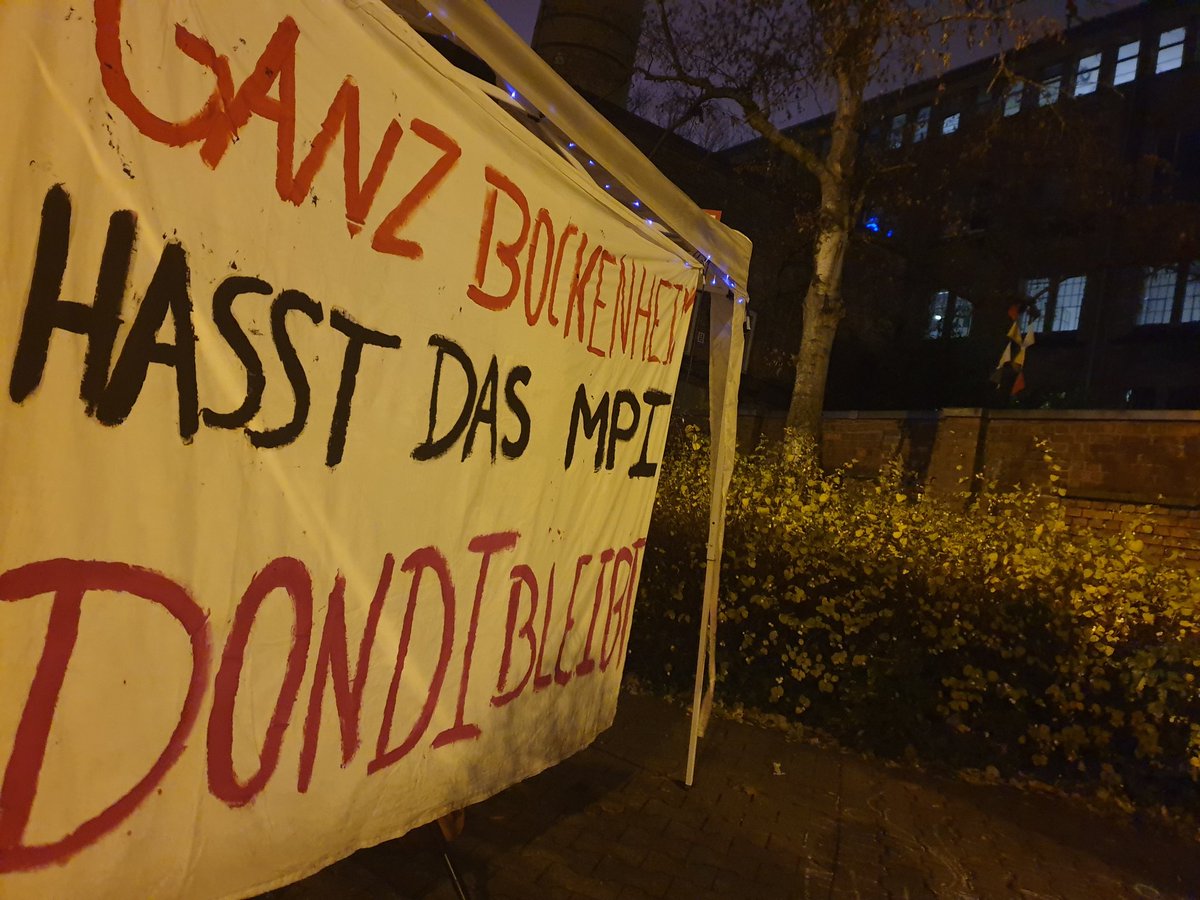 GANZ BOCKENHEIM
HASST DAS MPI
DONDI BLEIBT